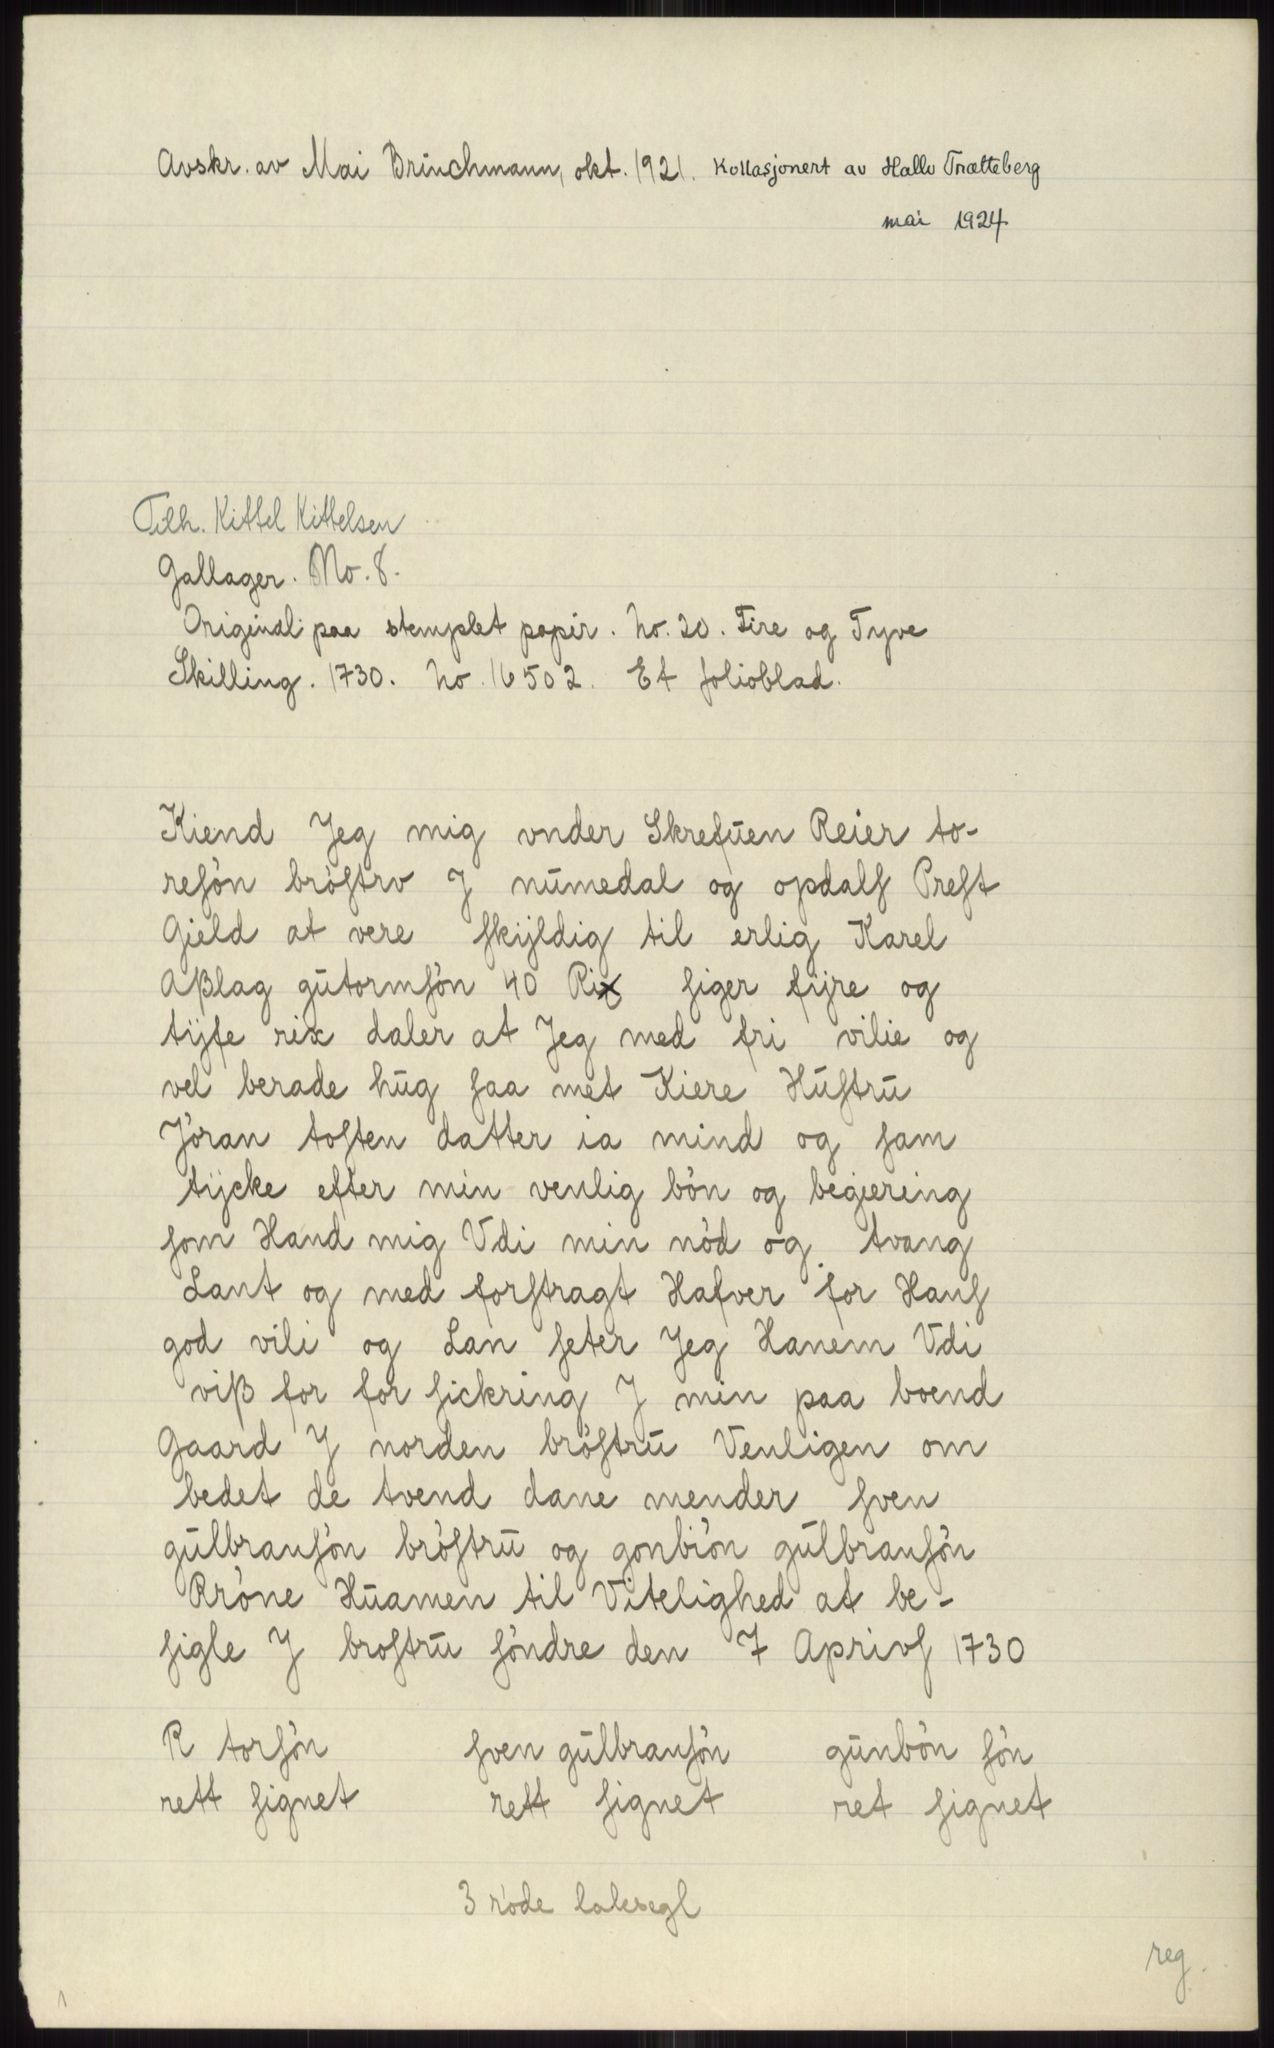 Avskr. av Mai Brinchmann, okt. 1921. Kollasjonert av Hallv Trætteberg
mai 1924
Tilh. Kittel Kittelsen
Gallager. No. 8.
Original paa stemplet papir. No. 20. Fire og Tyve
Skilling. 1730. No. 16502. Et folioblad.
Kiend Jeg mig vnder Skrefuen Reier to-
resön bröstrv J numedal og opdals Prest
Gield at vere skijldig til erlig Karel
Aßlag gutormsön 40 Rix siger fijre og
tijfe rix daler at Jeg med fri vilie og
vel berade hug saa met Kiere Hustru
Jöran tosten datter ia mind og sam
tijcke efter min venlig bön og begiering
som Hand mig Vdi min nöd og tvang
Lant og med forstragt Hafver for Hans
god vili og Lan seter Jeg Hanem Vdi
viß for for sickring J min paa boend
Gaard J norden bröstru Venligen om
bedet de tvend dane mender sven
gulbransön bröstru og gonbiön gulbransön
Rröne Huamen til Vitelighed at be-
sigle J brostru söndre den 7 Aprivs 1730
R torsön sven gulbransön gunbön sön
rett signet rett signet ret signet
3 röde laksegl
reg.
1